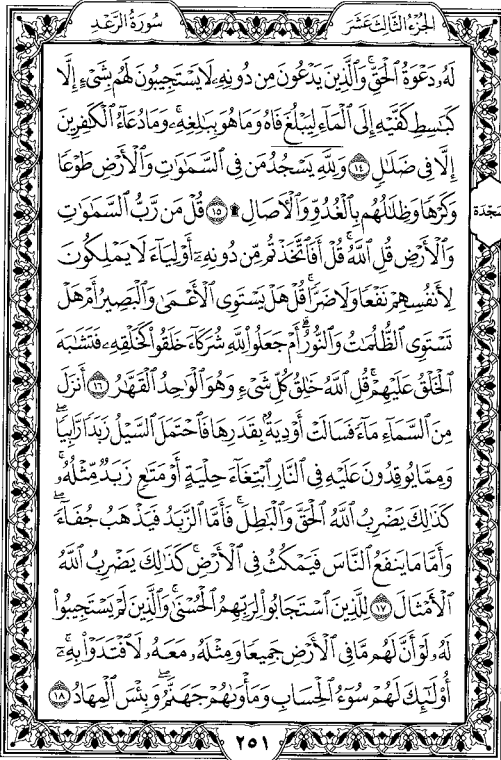 الجزء الثالث عشر
سورة الرعد
لَهُۥ دَعْوَةُ ٱلْحَقِّ ۖ وَٱلَّذِينَ يَدْعُونَ مِن دُونِهِۦ لَا يَسْتَجِيبُونَ لَهُم بِشَىْءٍ إِلَّا
كَبَـٰسِطِ كَفَّيْهِ إِلَى ٱلْمَآءِ لِيَبْلُغَ فَاهُ وَمَا هُوَ بِبَـٰلِغِهِۦ ۚ وَمَا دُعَآءُ ٱلْكَـٰفِرِينَ
إِلَّا فِى ضَلَـٰلٍ ١٤ وَلِلَّهِ يَسْجُدُ مَن فِى ٱلسَّمَـٰوَٰتِ وَٱلْأَرْضِ طَوْعًا
وَكَرْهًا وَظِلَـٰلُهُم بِٱلْغُدُوِّ وَٱلْـَٔاصَالِ ۩ ١٥ قُلْ مَن رَّبُّ ٱلسَّمَـٰوَٰتِ
وَٱلْأَرْضِ قُلِ ٱللَّهُ ۚ قُلْ أَفَٱتَّخَذْتُم مِّن دُونِهِۦٓ أَوْلِيَآءَ لَا يَمْلِكُونَ
لِأَنفُسِهِمْ نَفْعًا وَلَا ضَرًّا ۚ قُلْ هَلْ يَسْتَوِى ٱلْأَعْمَىٰ وَٱلْبَصِيرُ أَمْ هَلْ
تَسْتَوِى ٱلظُّلُمَـٰتُ وَٱلنُّورُ ۗ أَمْ جَعَلُوا۟ لِلَّهِ شُرَكَآءَ خَلَقُوا۟ كَخَلْقِهِۦ فَتَشَـٰبَهَ
ٱلْخَلْقُ عَلَيْهِمْ ۚ قُلِ ٱللَّهُ خَـٰلِقُ كُلِّ شَىْءٍ وَهُوَ ٱلْوَٰحِدُ ٱلْقَهَّـٰرُ ١٦ أَنزَلَ
مِنَ ٱلسَّمَآءِ مَآءً فَسَالَتْ أَوْدِيَةٌۢ بِقَدَرِهَا فَٱحْتَمَلَ ٱلسَّيْلُ زَبَدًا رَّابِيًا ۚ
وَمِمَّا يُوقِدُونَ عَلَيْهِ فِى ٱلنَّارِ ٱبْتِغَآءَ حِلْيَةٍ أَوْ مَتَـٰعٍ زَبَدٌ مِّثْلُهُۥ ۚ
كَذَٰلِكَ يَضْرِبُ ٱللَّهُ ٱلْحَقَّ وَٱلْبَـٰطِلَ ۚ فَأَمَّا ٱلزَّبَدُ فَيَذْهَبُ جُفَآءً ۖ
وَأَمَّا مَا يَنفَعُ ٱلنَّاسَ فَيَمْكُثُ فِى ٱلْأَرْضِ ۚ كَذَٰلِكَ يَضْرِبُ ٱللَّهُ
ٱلْأَمْثَالَ ١٧ لِلَّذِينَ ٱسْتَجَابُوا۟ لِرَبِّهِمُ ٱلْحُسْنَىٰ ۚ وَٱلَّذِينَ لَمْ يَسْتَجِيبُوا۟
لَهُۥ لَوْ أَنَّ لَهُم مَّا فِى ٱلْأَرْضِ جَمِيعًا وَمِثْلَهُۥ مَعَهُۥ لَٱفْتَدَوْا۟ بِهِۦٓ ۚ
أُو۟لَـٰٓئِكَ لَهُمْ سُوٓءُ ٱلْحِسَابِ وَمَأْوَىٰهُمْ جَهَنَّمُ ۖ وَبِئْسَ ٱلْمِهَادُ ١٨
سجدة
٢٥١